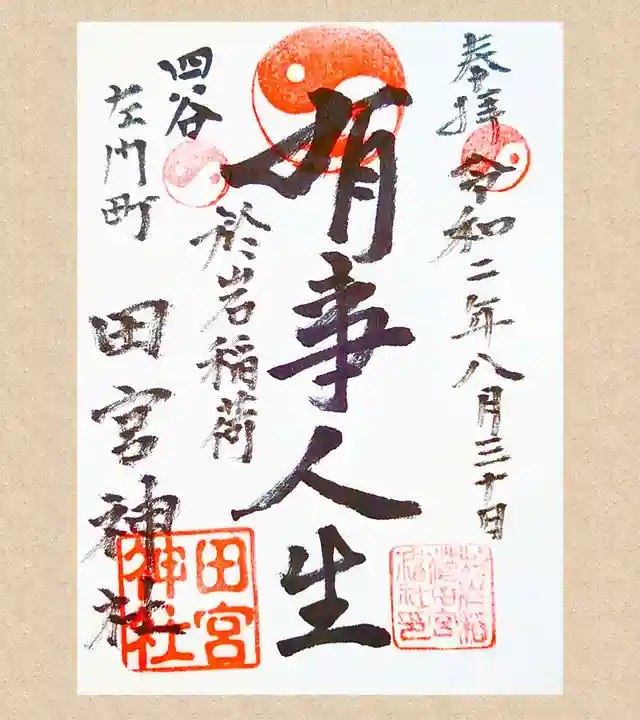 奉拝
令和二年八月三十日
有事人生
四谷
左門町
於岩稲荷
田宮神社
田宮
神社